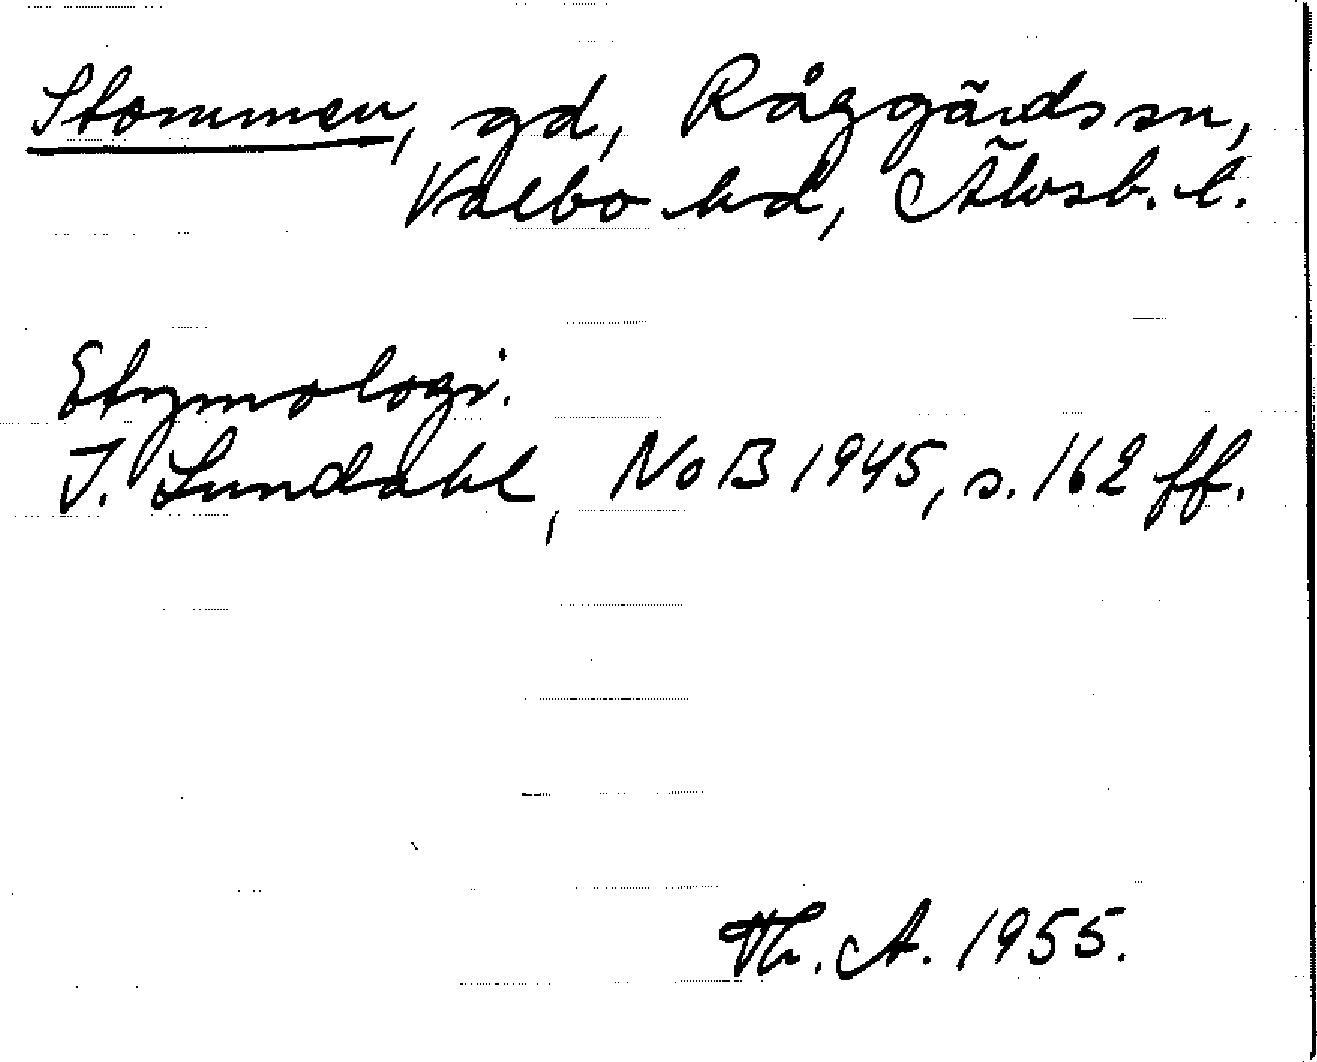 Stommen, gd, Råggärds sn,
Valbo hd, Älvsb. l.
Etymologi.
I. Lundahl, NoB 1945, s. 162 ff.
Th. A. 1955.